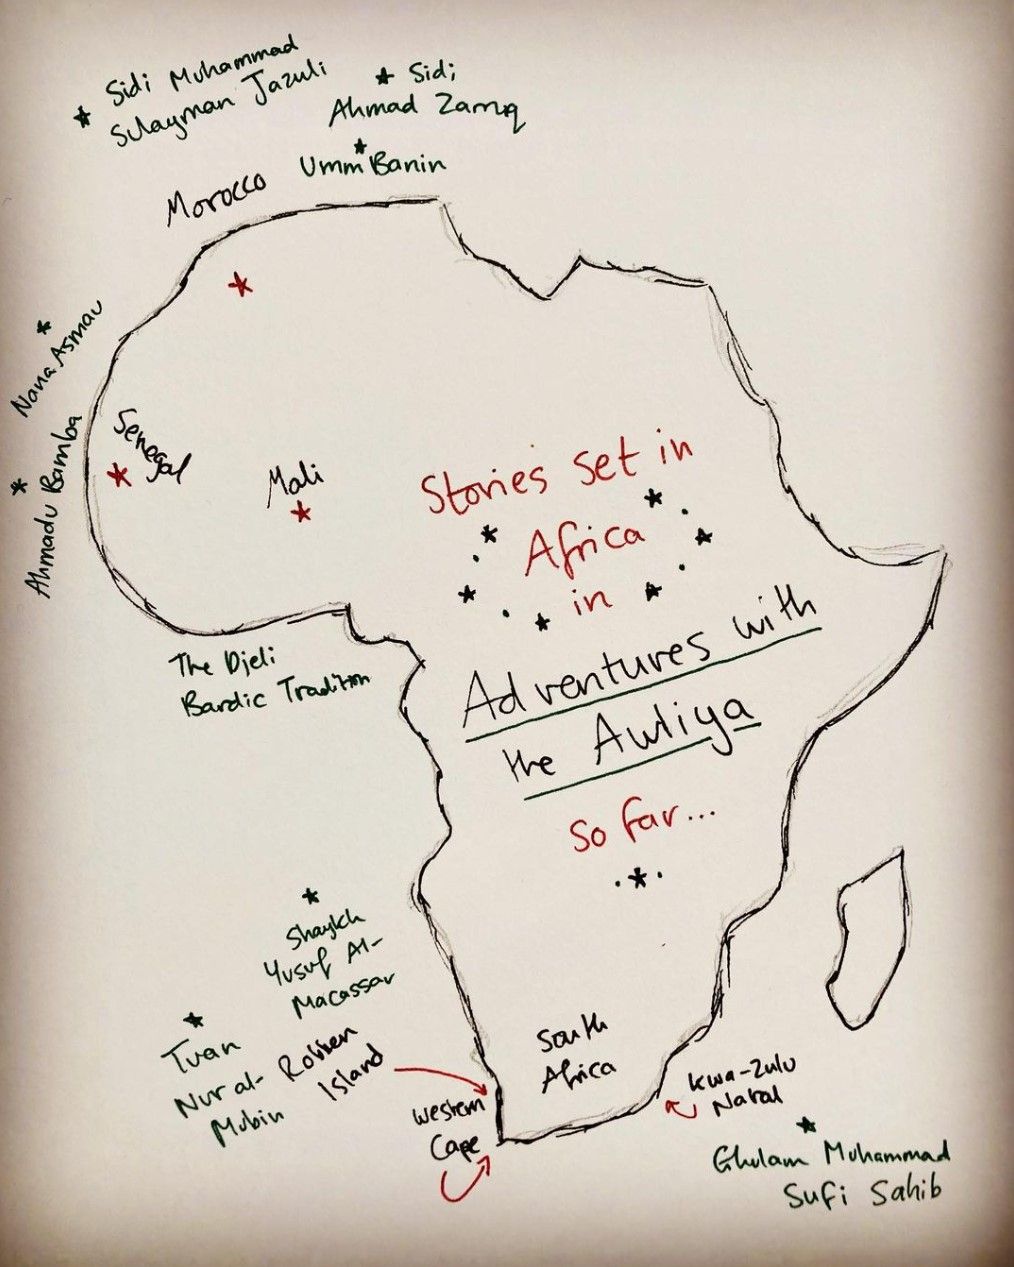 Sidi Muhammad
Sulayman Jazuli
Sidi
Ahmad Zarruq
Umm Banin
Morocco
Nana Asmau
Ahmadu Bamba
Senegal
Mali
Stories set in
Africa
in
Adventures with
the Awliya
So far...
The Djeli
Bardic Tradition
Shaykh
Yusuf Al-
Macassar
Tuan
Nur al-
Mubin
Robben
Island
Western
Cape
South
Africa
Kwa-Zulu
Natal
Ghulam Muhammad
Sufi Sahib